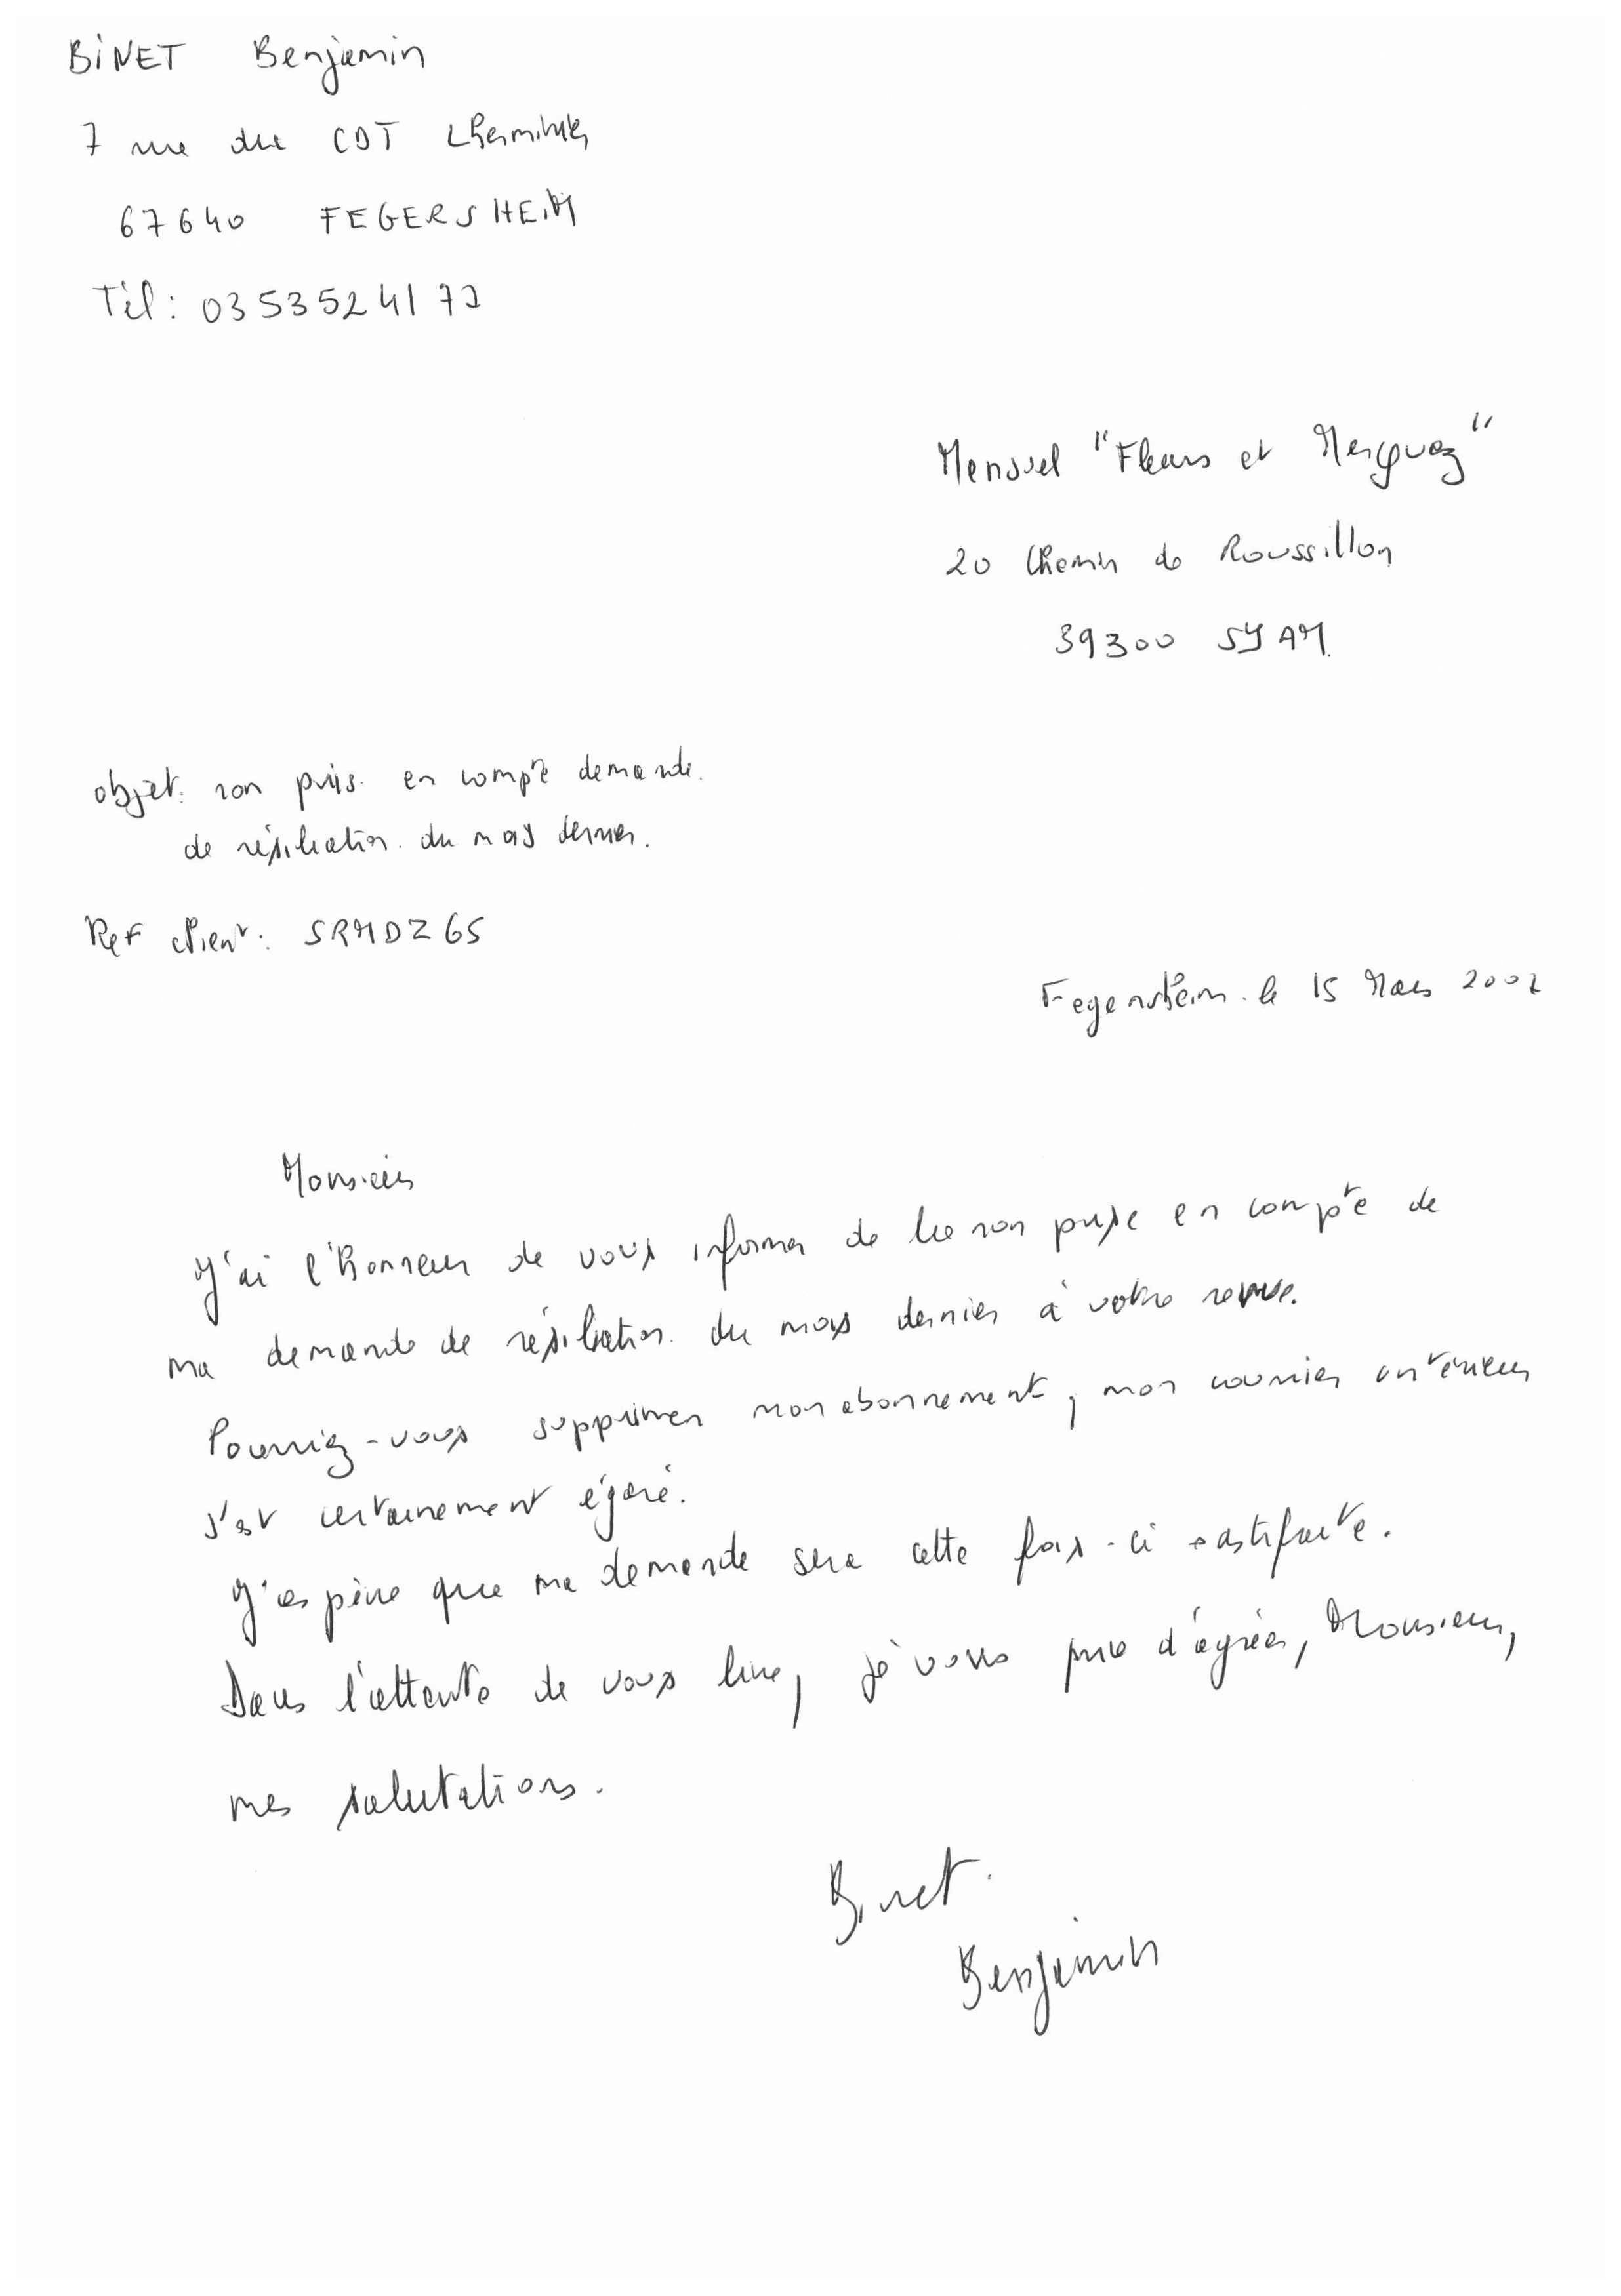 BiNET Benjamin
7 rue du CDT Lherminier
67640 FEGERSHEiM
Tèl: 03 53 52 41 72
Mensuel "Fleurs et
20 Chemin de Roussillon
39300 SYAM.
objet: non pris en compte demande.
de résiliation. du mois dernier.
Ref client: SRMDZ65
Fegersheim. le 15 Mars 2002
Monsieur
J'ai l'honneur de vous informer de la non prise en compte de
ma demande de résiliation. du mois dernier à votre revue.
Pourriez-vous supprimer mon abonnement, mon courrier antérieur
s'est certainement égaré.
J'espère que ma demande sera cette fois-ci satisfaite.
Dans l'attente de vous lire, je vous prie d'agréer, Monsieur,
mes salutations.
Binet.
Benjamin